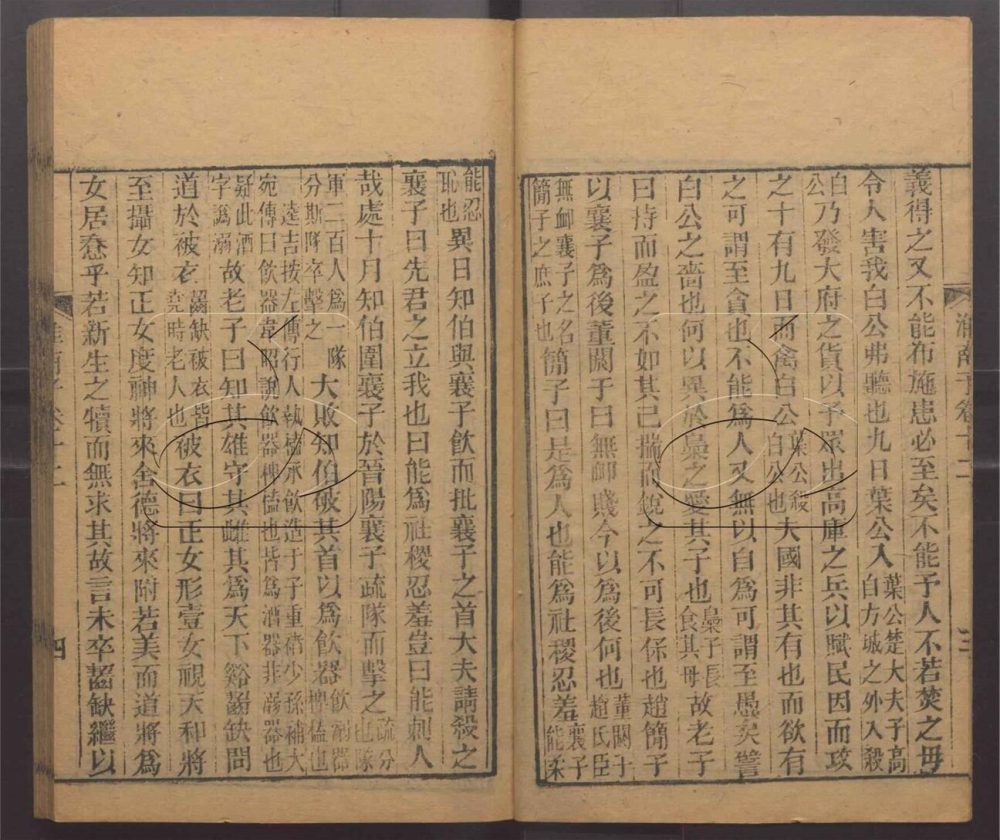 義得之又不能布施患必至矣不能予人不若焚之毋
令人害我白公弗聽也九日葉公入葉公楚大夫子高自方城之外入殺
白公乃發大府之貨以予眾出高庫之兵以賦民因而攻
之十有九日而禽白公葉公殺白公也夫國非其有也而欲有
之可謂至貪也不能爲人又無以自爲可謂至愚矣譬
白公之嗇也何以異於梟之愛其子也梟子長食其母故老子
曰持而盈之不如其已揣而銳之不可長保也趙簡子
以襄子爲後董閼于曰無卹賤今以爲後何也董閼于趙氏臣
無卹襄子之名簡子之庶子也簡子曰是爲人也能爲社稷忍羞襄子能柔
淮南子卷十二
三
能忍恥也異日知伯與襄子飲而批襄子之首大夫請殺之
襄子曰先君之立我也曰能爲社稷忍羞豈曰能刺人
哉處十月知伯圍襄子於晉陽襄子疏隊而擊之疏分也隊
軍二百人爲一隊分斯隊卒擊之大敗知伯破其首以爲飲器飲溺器椑榼也
逵吉按左傳行人執榼承飲造于子重褚少孫補大
宛傳曰飲器韋昭說飲器椑榼也皆爲酒器非溺器也
疑此酒字譌溺故老子曰知其雄守其雌其爲天下谿齧缺問
道於被衣齧缺被衣皆堯時老人也被衣曰正女形壹女視天和將
至攝女知正女度神將來舍德將來附若美而道將爲
女居惷乎若新生之犢而無求其故言未卒齧缺繼以
淮南子卷十二
四